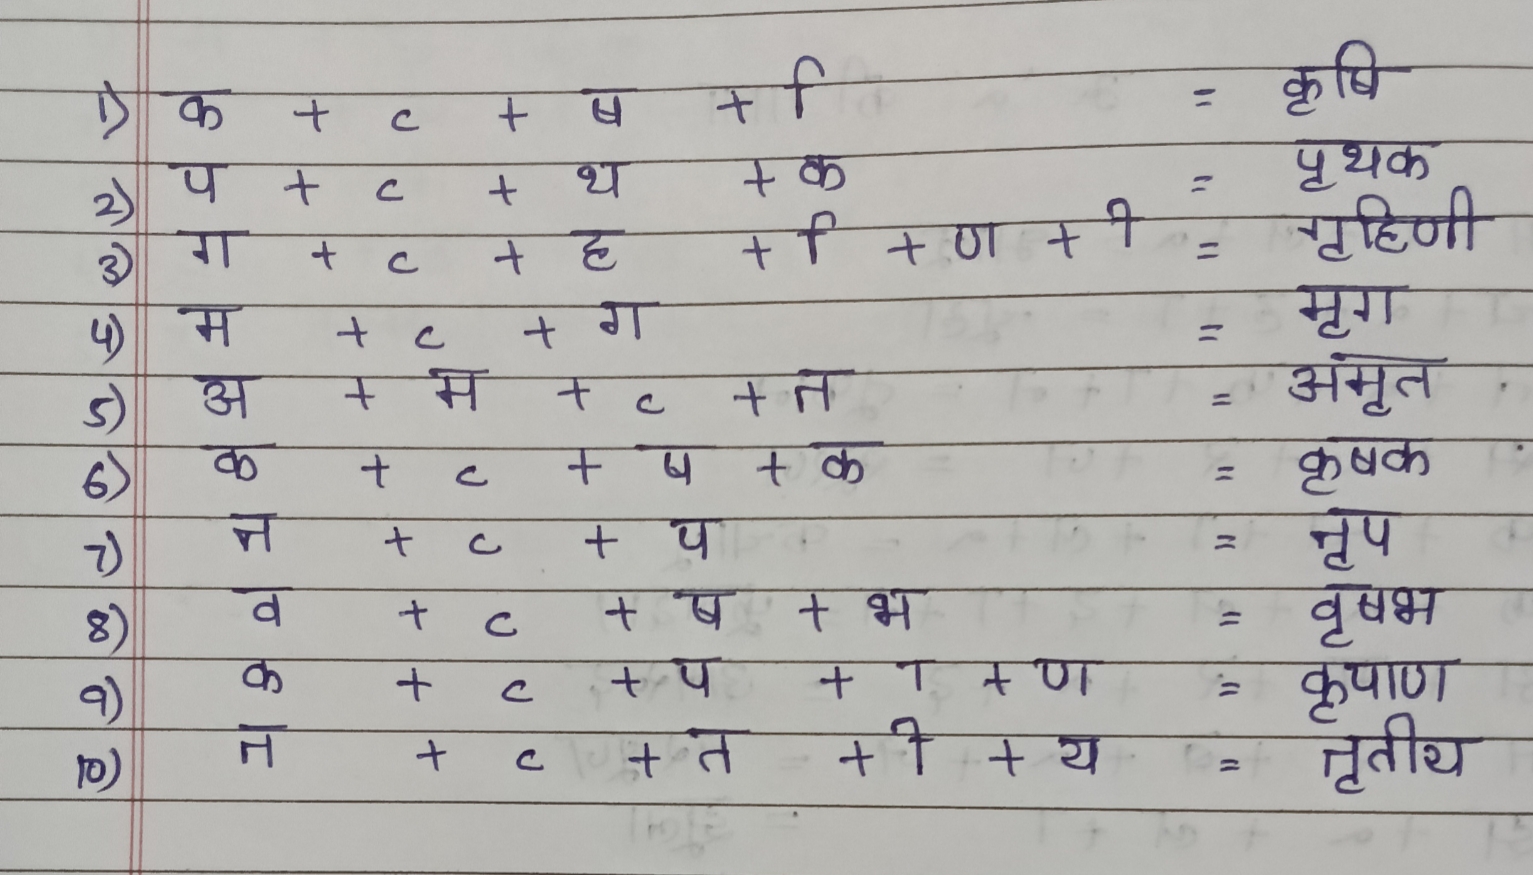 1) क + ृ + ष + ि = कृषि
2) प + ृ + थ + क = पृथक
3) ग + ृ + ह + ि + ण + ी = गृहिणी
4) म + ृ + ग = मृग
5) अ + म + ृ + त = अमृत
6) क + ृ + ष + क = कृषक
7) न + ृ + प = नृप
8) व + ृ + ष + भ = वृषभ
9) क + ृ + प + ा + ण = कृपाण
10) त + ृ + त + ी + य = तृतीय